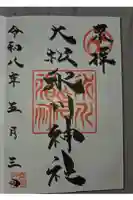 奉拝
大阪氷川神社
令和八年五月三日